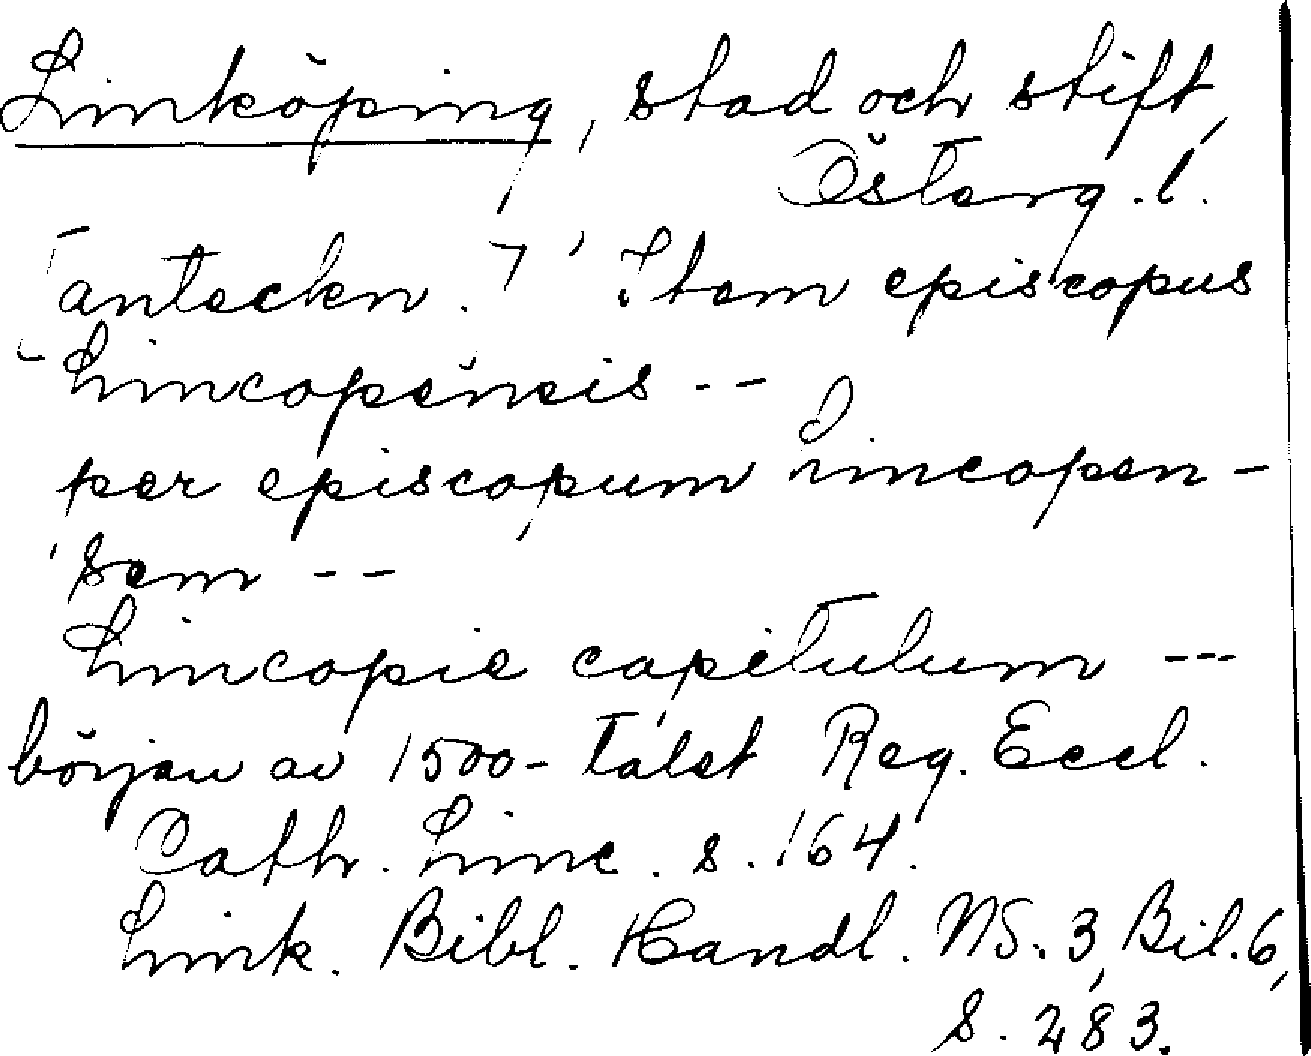 Linköping, stad och stift,
Österg. l.
anteckn. Item episcopus
Lincopensis --
per episcopum Lincopen-
sem --
Lincopie capitulum ---
början av 1500-talet Reg. Eccl.
Cath. Linc. s. 164.
Link. Bibl. Handl. NS. 3, Bil. 6,
s. 283.